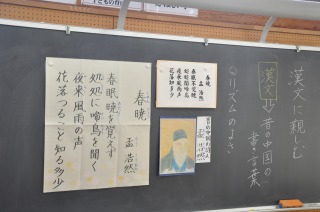 漢文に親しむ
漢文 昔の中国の
書き言葉
リズムのよさ
春暁
孟浩然
春眠不覚暁
処処聞啼鳥
夜来風雨声
花落知多少
春暁
孟浩然
春眠暁を覚えず
処処に啼鳥を聞く
夜来風雨の声
花落つること知る多少